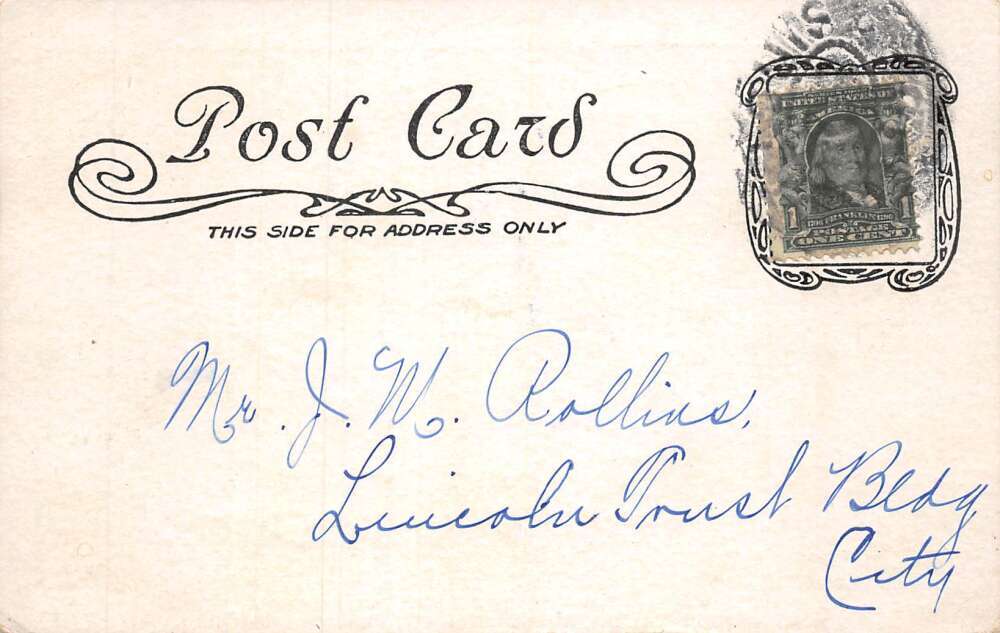 Post Card
THIS SIDE FOR ADDRESS ONLY
1 1706 FRANKLIN 1790 1
ONE CENT
Mr. J. W. Rollins,
Lincoln Trust Bldg
City